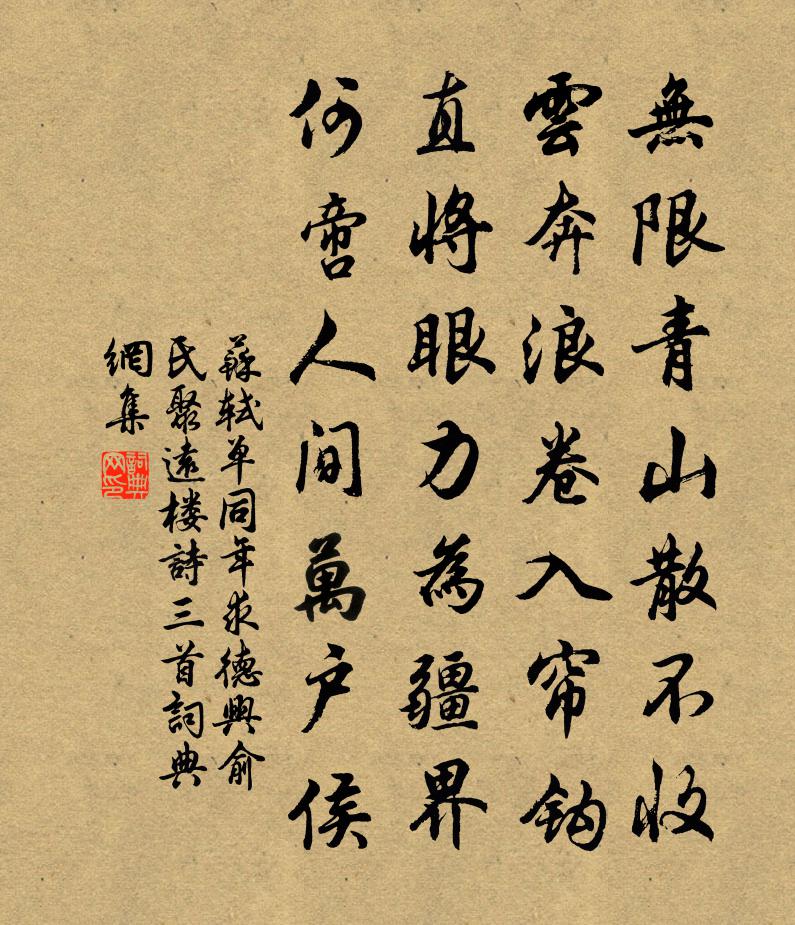 無限青山散不收
雲奔浪卷入帘鈎
直將眼力為疆界
何啻人間萬戶侯
蘇軾單同年求德興俞
氏聚遠楼詩三首詞典
網集
詞典
网印